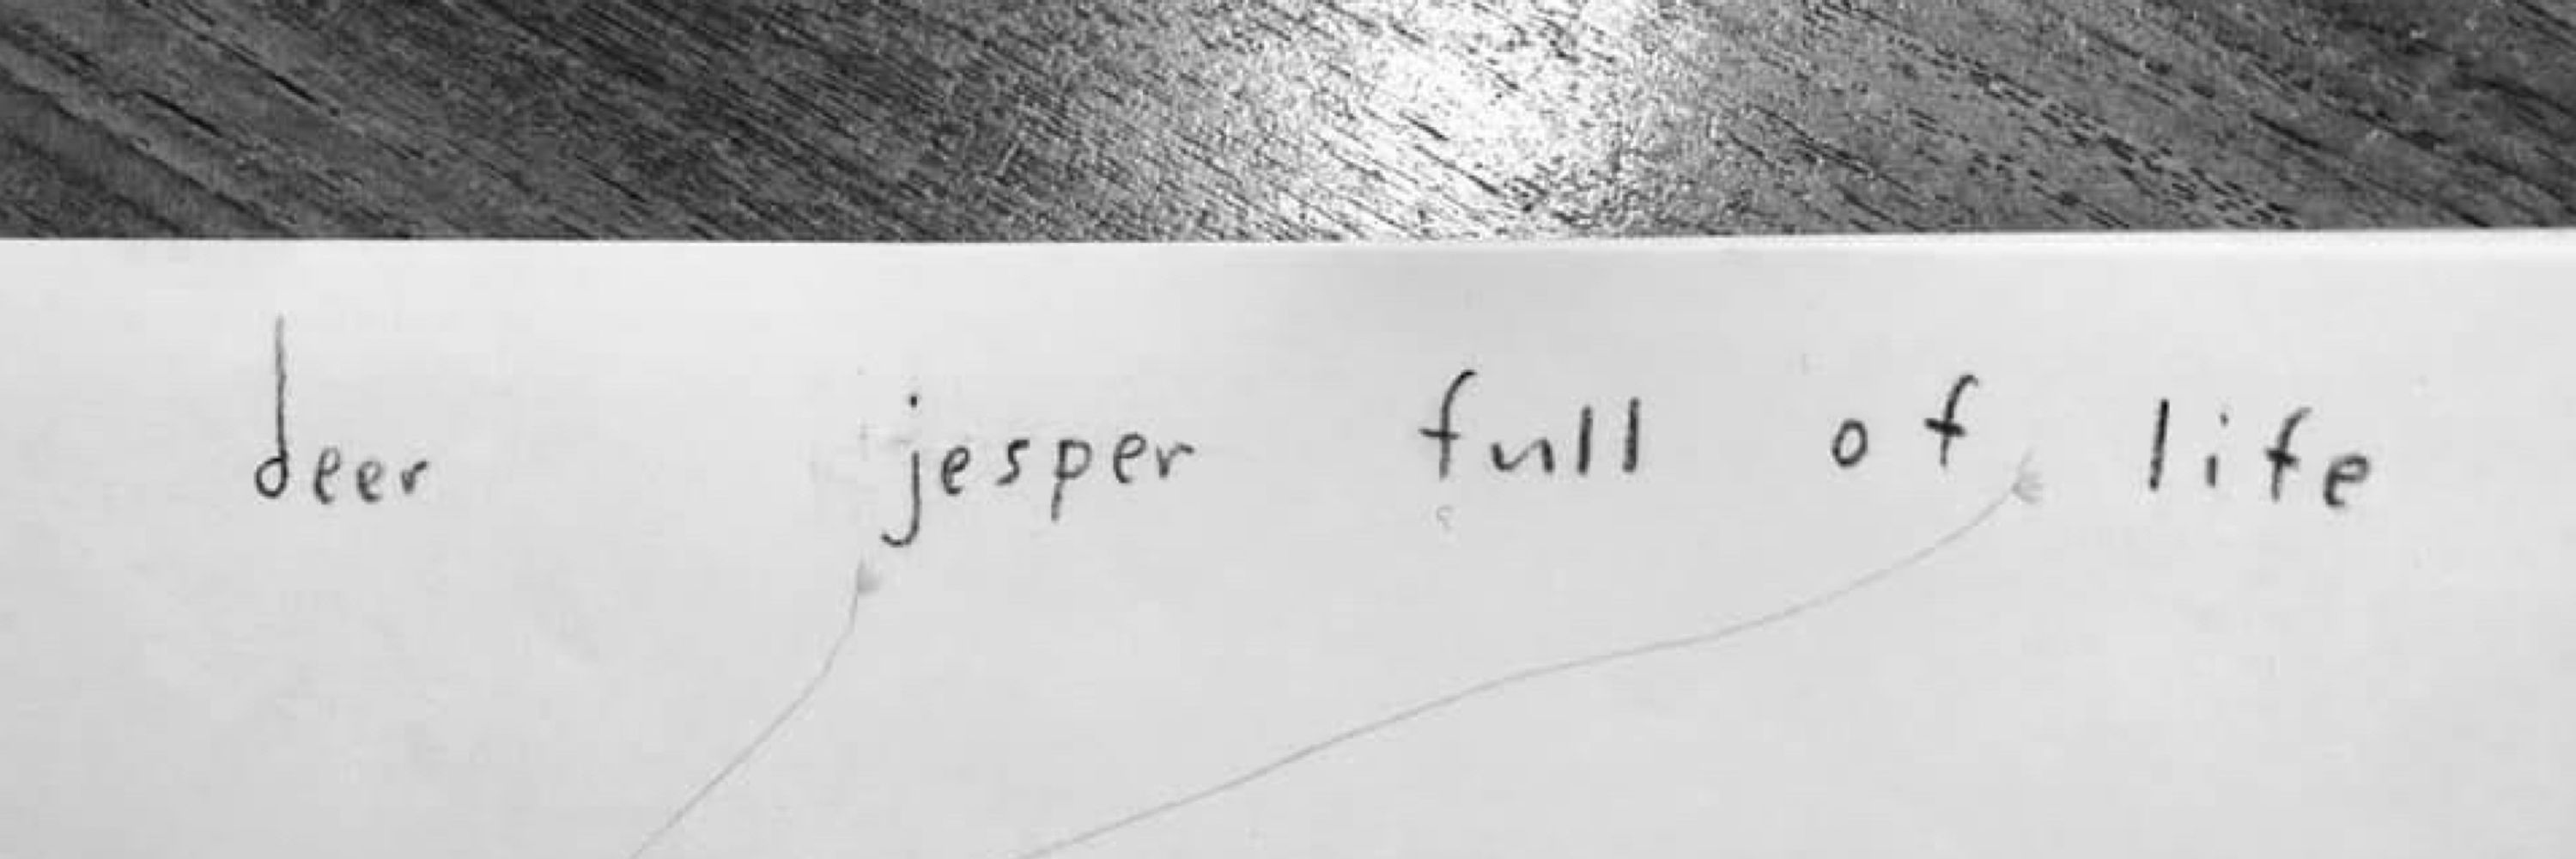 deer jesper full of life